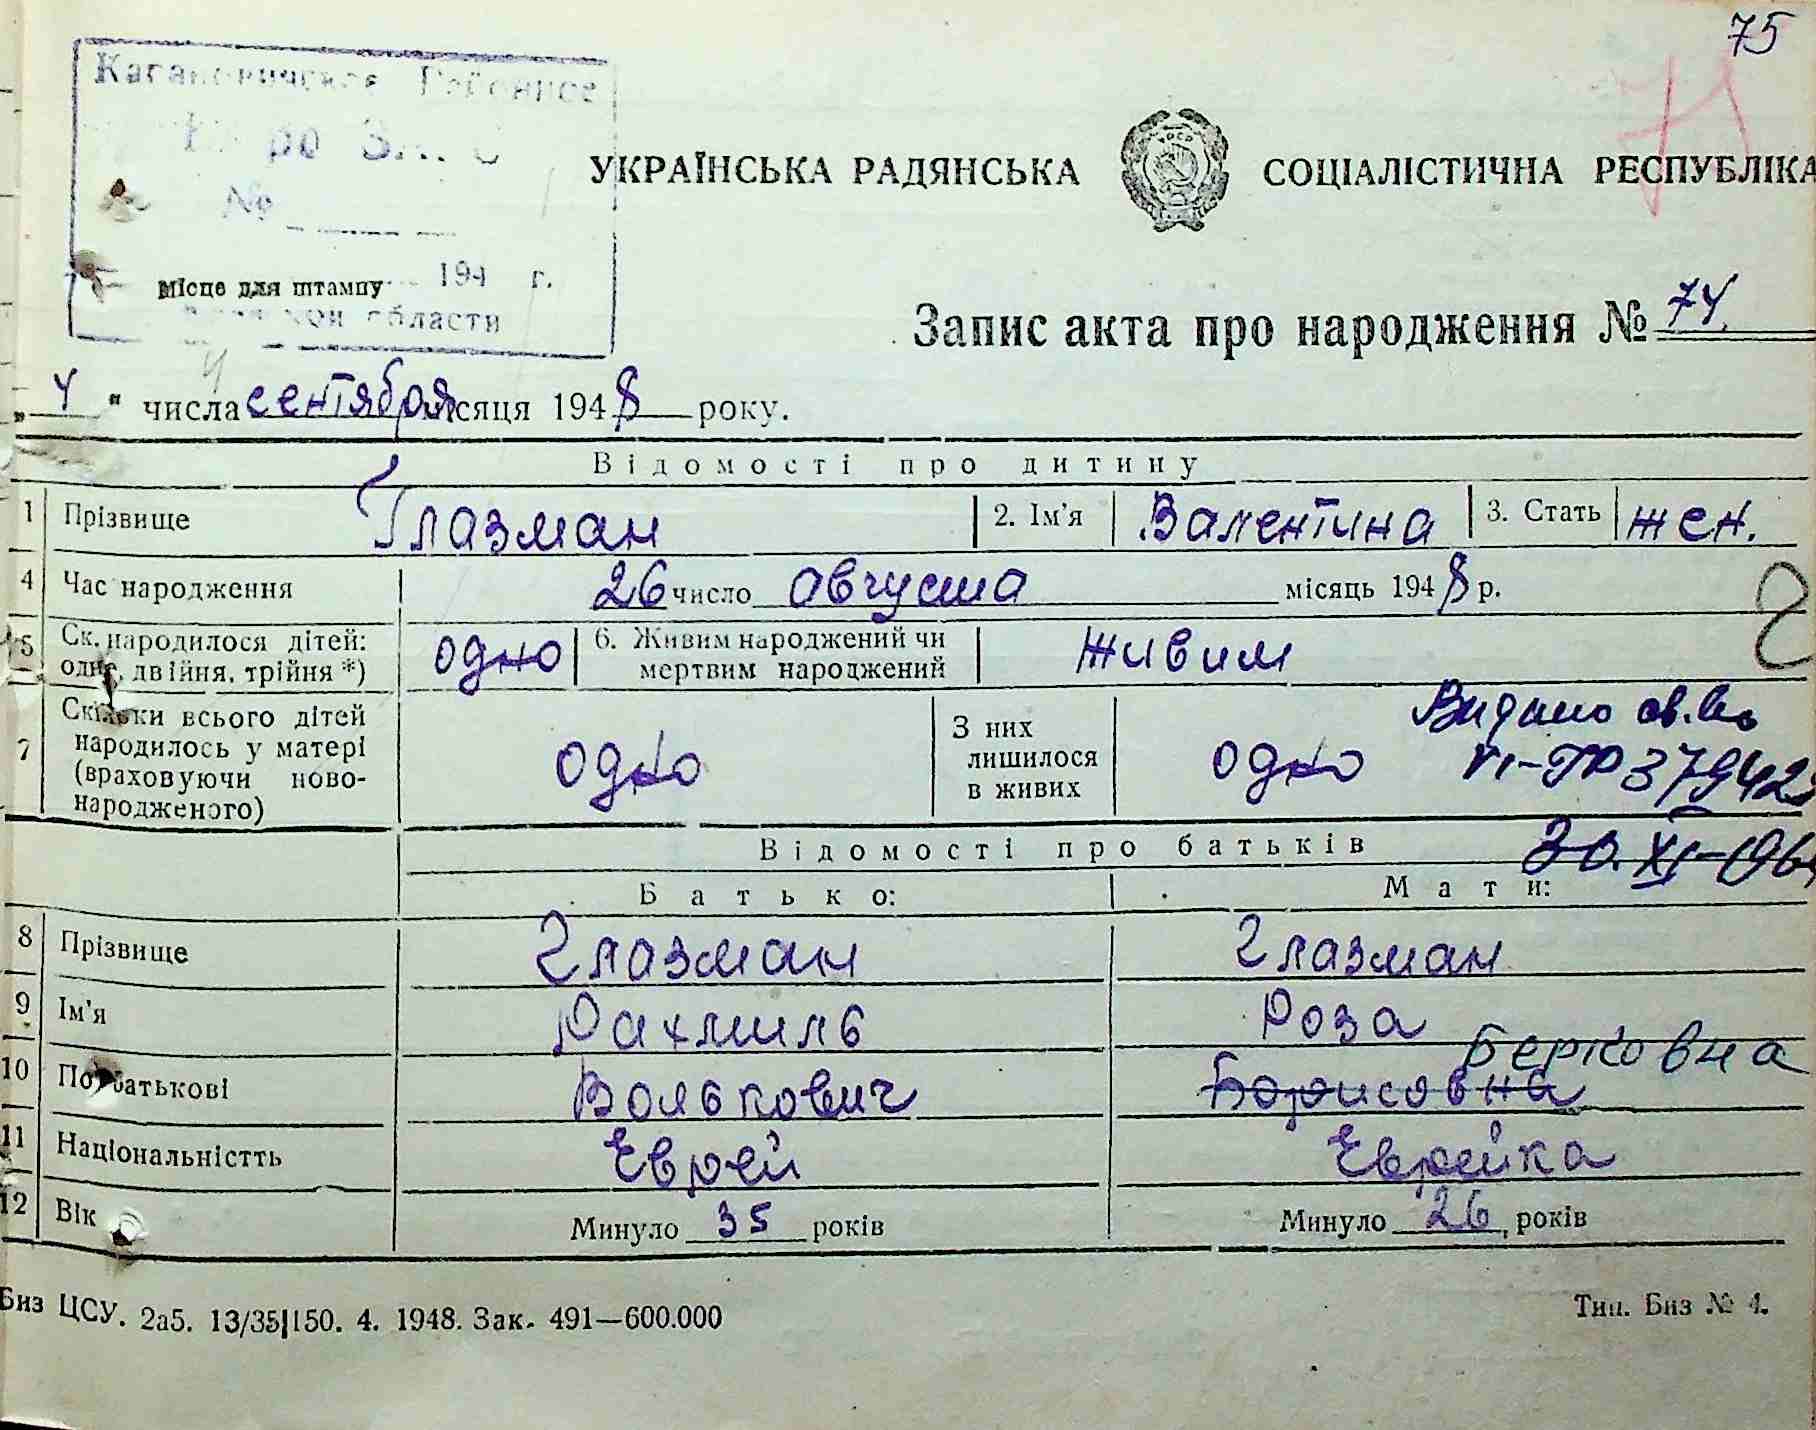 75
71
Кагановичское Районное
Бюро ЗАГС
№
194 г.
Місце для штампу
области
УКРАЇНСЬКА РАДЯНСЬКА СОЦІАЛІСТИЧНА РЕСПУБЛІКА
Запис акта про народження № 74.
„4“ числа сентября місяця 1948 року.
Відомості про дитину
1 Прізвище Глазман 2. Ім'я Валентина 3. Стать жен.
4 Час народження 26 число августа місяць 1948 р.
5 Ск. народилося дітей: одне, двійня, трійня *) одно 6. Живим народжений чи мертвим народжений живим
Видано св.
7 Скільки всього дітей народилось у матері (враховуючи ново-народженого) одно З них лишилося в живих одно
37942
30. XI-196
Відомості про батьків
Батько: Мати:
8 Прізвище Глазман Глазман
9 Ім'я Рахмиль Роза
Берковна
10 По батькові Волькович Борисовна
11 Національністть Еврей Еврейка
12 Вік Минуло 35 років Минуло 26 років
Биз ЦСУ. 2а5. 13/35|150. 4. 1948. Зак. 491—600.000 Тип. Биз № 4.